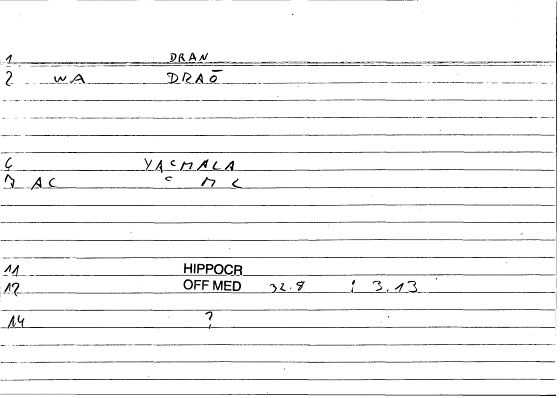 1 DRAN
2 WA DRAŌ
6 YACMALA
7 AC C M L
11 HIPPOCR
12 OFF MED 32.8 : 3.13
14 ?